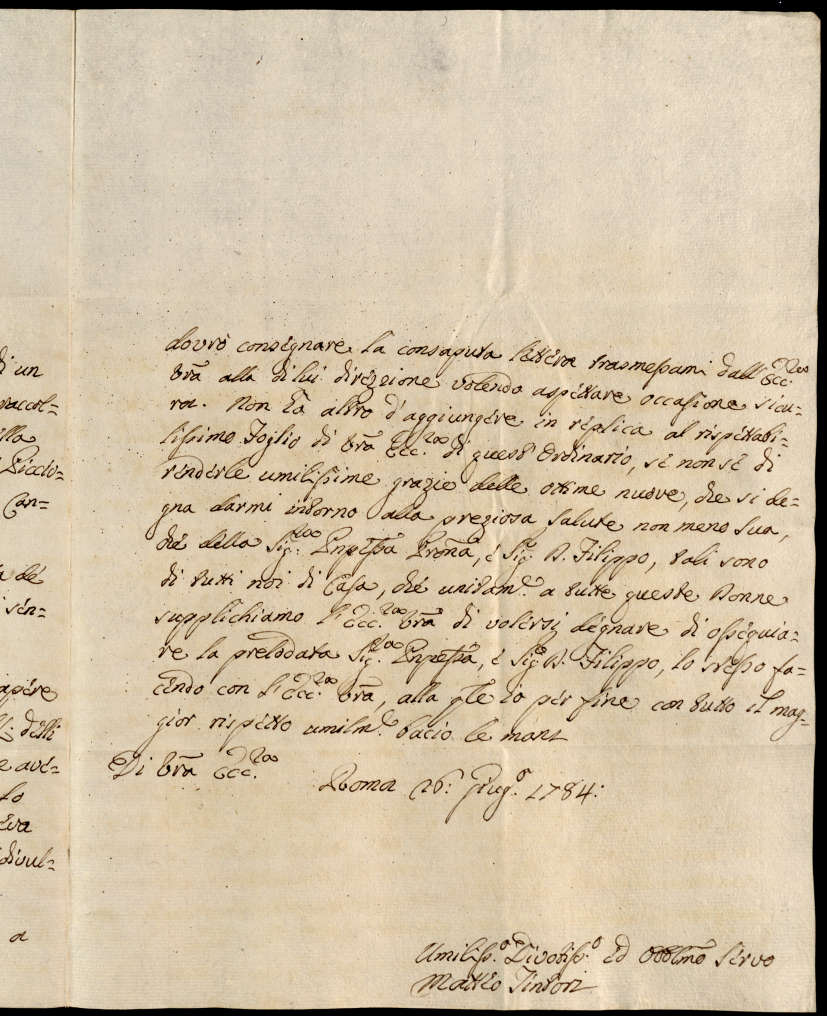 di un
raccol=
illa
Piccio=
Can=
a de
sen=
apere
delli
e ave=
to
eva
divul=
a
dovrò consegnare la consaputa lettera trasmessami dall'Ecc.za
Vrã alla di lui direzzione volendo aspettare occasione sicu=
ra. Non hà altro d'aggiungere in replica al rispettabi=
lissimo Foglio di Vrã Ecc.za di quest'Ordinario, se non se di
renderle umilissime grazie delle ottime nuove, che si de=
gna darmi intorno alla preziosa salute non meno sua,
che della Sig.ra Pnpessa Prõna, e Sig. D. Filippo, tali sono
di tutti noi di Casa, che unitam.e a tutte queste Donne
supplichiamo l'Ecc.za Vrã di volersi degnare di ossequia=
re la prelodata Sig.ra Pnpessa, e Sig. D. Filippo, lo stesso fa=
cendo con l'Ecc.za Vrã, alla qle io per fine con tutto il mag=
gior rispetto umilm.e bacio le mani
Di Vrã Ecc.za
Roma 26: Giug.o 1784:
Umiliss.o Divotiss.o ed Obblmõ Servo
Matteo Tintori